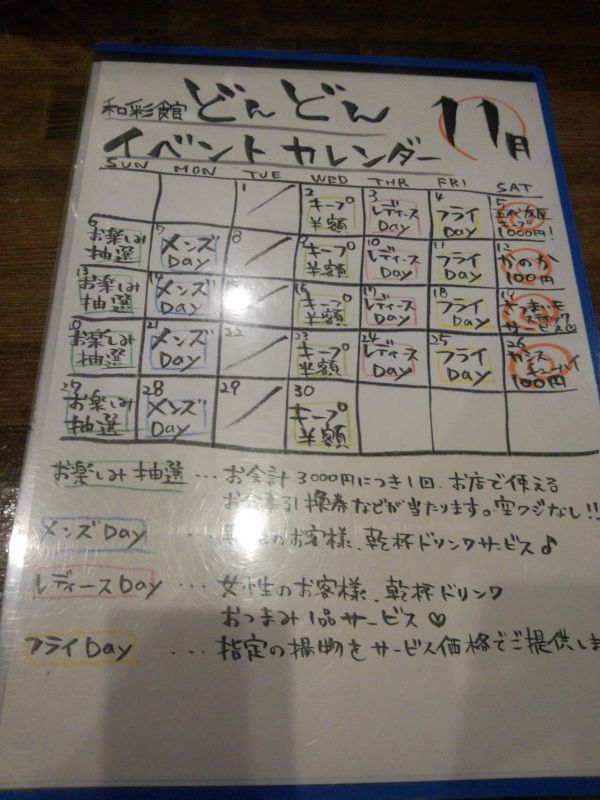 和彩館 どんどん 11月
イベントカレンダー
SUN MON TUE WED THR FRI SAT
1 2 キープ半額 3 レディースDay 4 フライDay 5 1000円!
6 お楽しみ抽選 7 メンズDay 8 9 キープ半額 10 レディースDay 11 フライDay 12 かのか100円
13 お楽しみ抽選 14 メンズDay 15 16 キープ半額 17 レディースDay 18 フライDay 19 サービス♡
20 お楽しみ抽選 21 メンズDay 22 23 キープ半額 24 レディースDay 25 フライDay 26 100円
27 お楽しみ抽選 28 メンズDay 29 30 キープ半額
お楽しみ抽選 ・・・ お会計3000円につき1回、お店で使える
お食事引換券などが当たります。空クジなし!!
メンズDay ・・・ 男性のお客様、乾杯ドリンクサービス♪
レディースDay ・・・ 女性のお客様、乾杯ドリンク
おつまみ1品サービス♡
フライDay ・・・ 指定の揚物をサービス価格でご提供しま